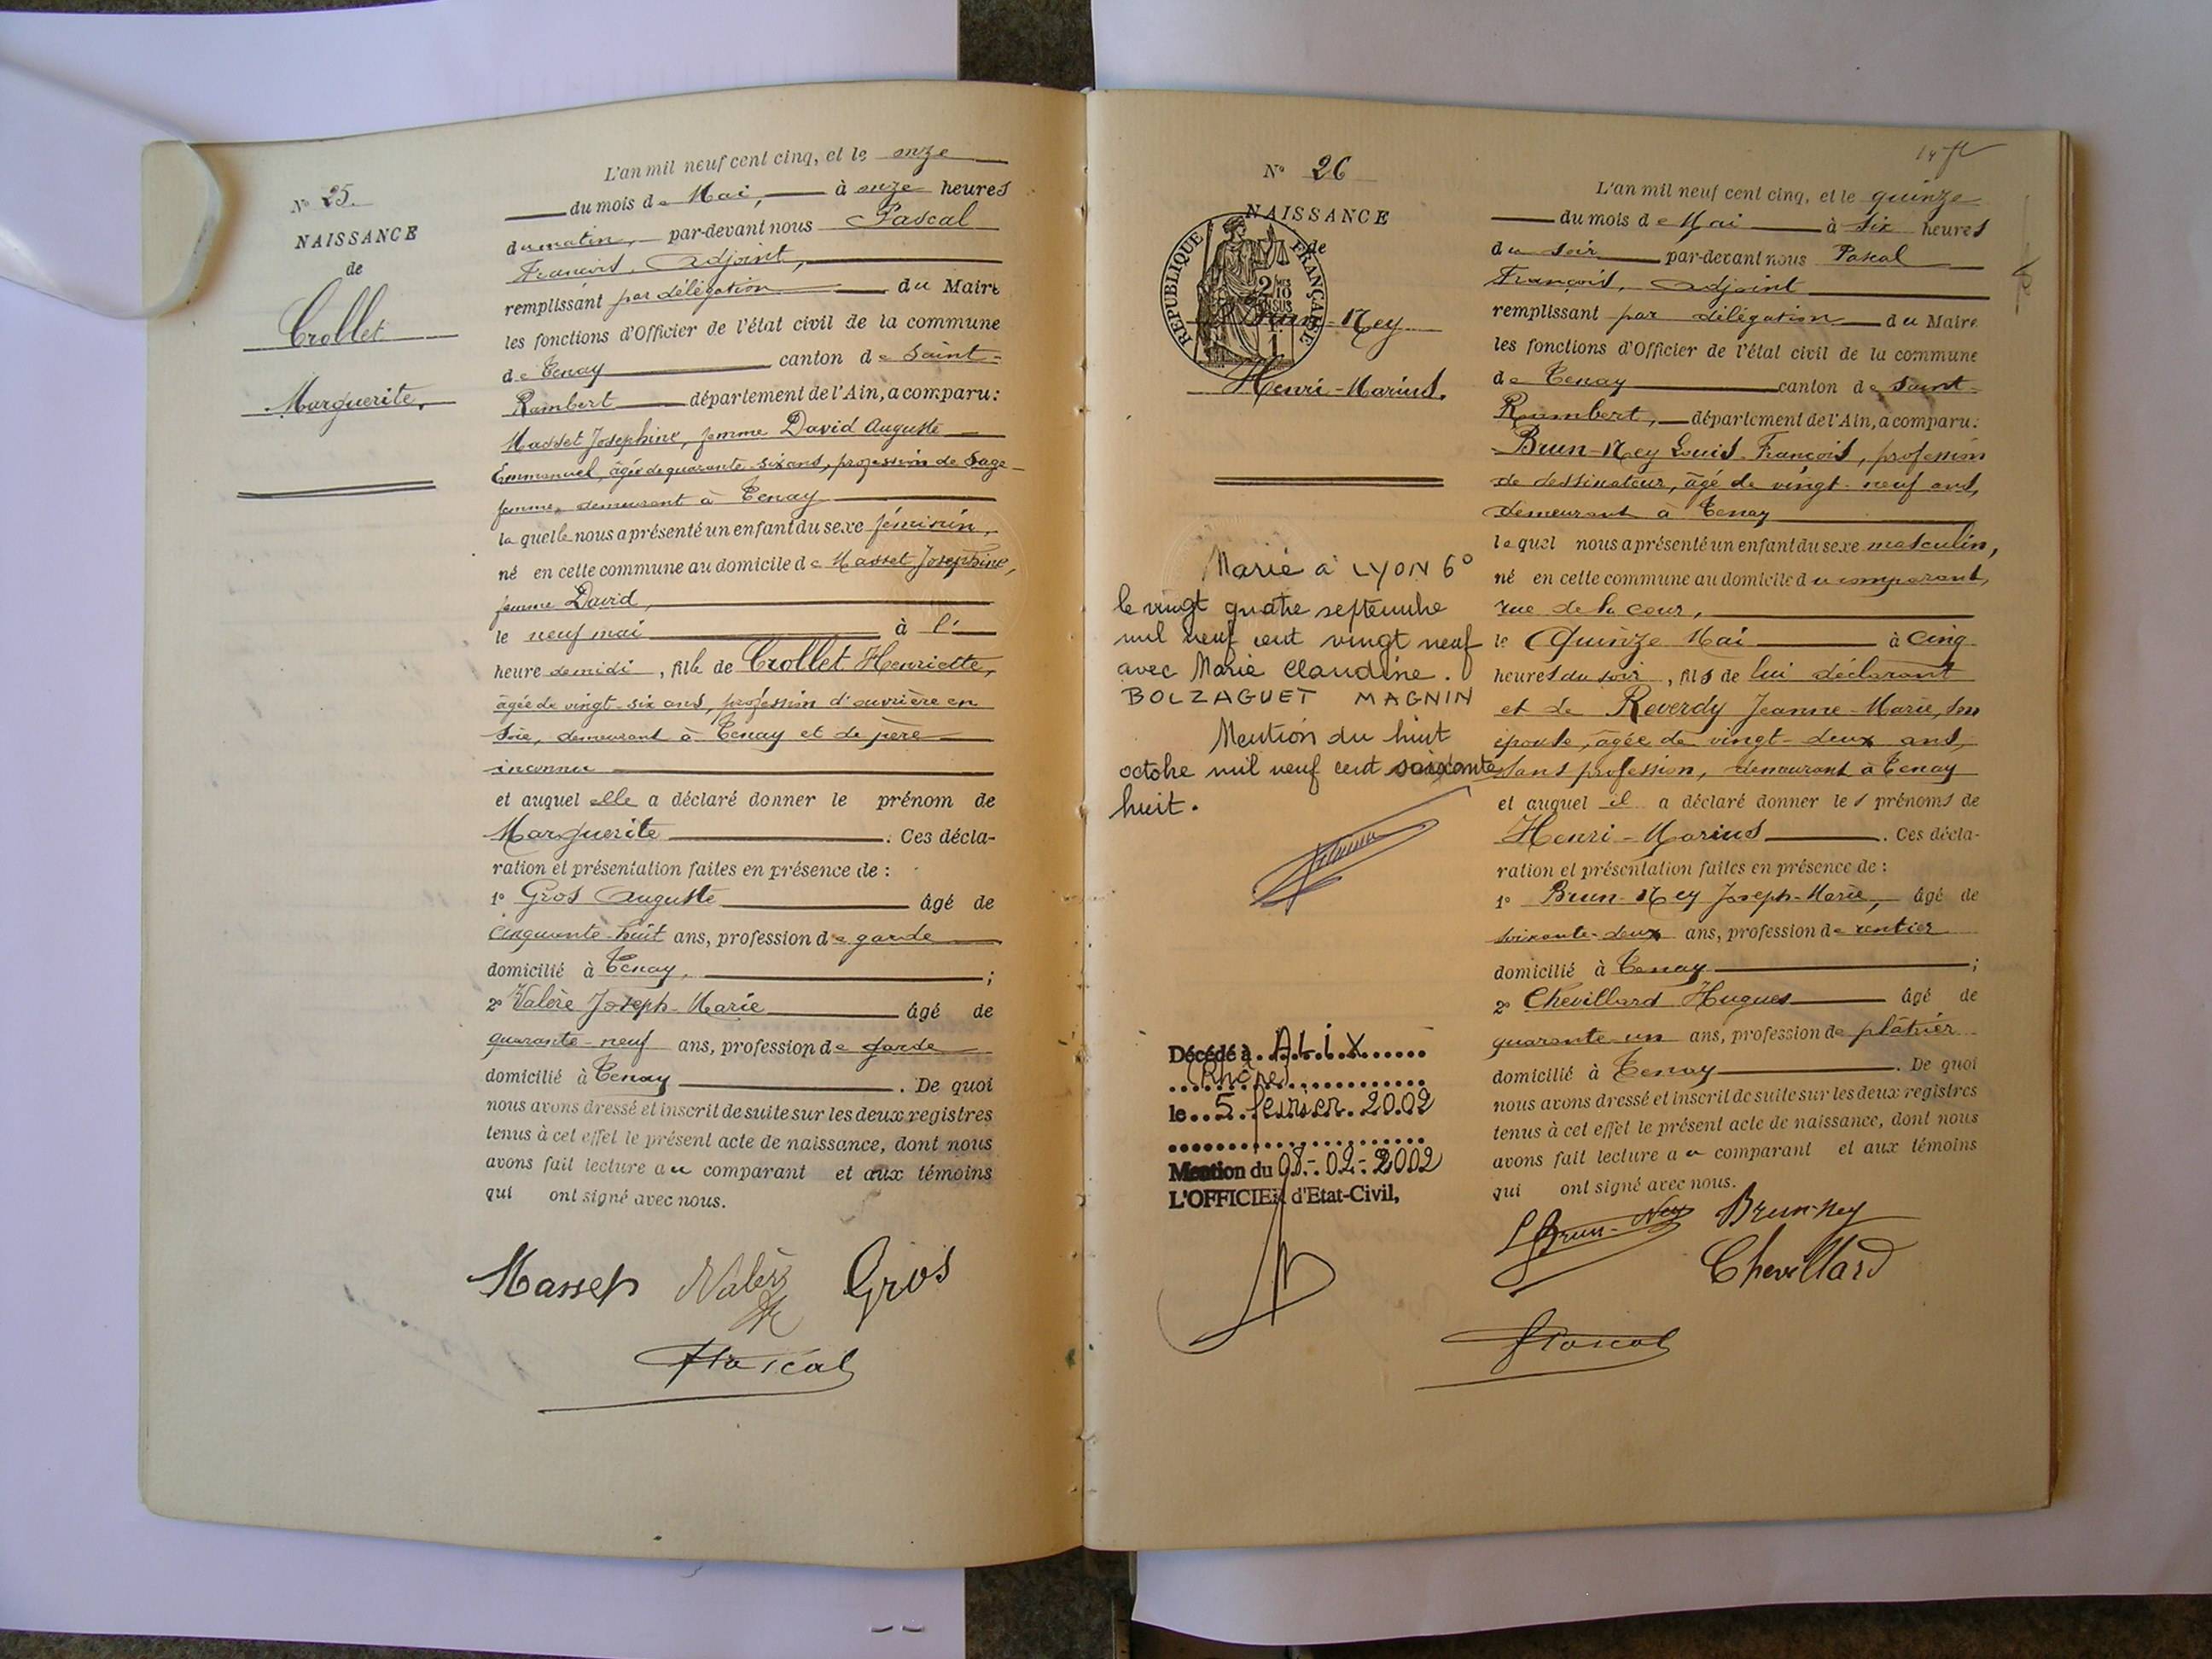 Nº 25.
NAISSANCE
de
Crollet
Marguerite.
L'an mil neuf cent cinq, et le onze
du mois de Mai, à onze heures
du matin, par-devant nous Pascal
François, Adjoint,
remplissant par délégation du Maire
les fonctions d'Officier de l'état civil de la commune
de Tenay canton de Saint-
Rambert département de l'Ain, a comparu:
Masset Josephine, femme David Auguste
Emmanuel, âgée de quarante-six ans, profession de Sage-
femme, demeurant à Tenay
laquelle nous a présenté un enfant du sexe féminin,
né en cette commune au domicile de Masset Josephine,
femme David,
le neuf mai à l'
heure de midi, fille de Crollet Henriette,
âgée de vingt-six ans, profession d'ouvrière en
soie, demeurant à Tenay et de père
inconnu
et auquel elle a déclaré donner le prénom de
Marguerite. Ces décla-
ration et présentation faites en présence de :
1º Gros Auguste âgé de
cinquante-huit ans, profession de garde
domicilié à Tenay, ;
2º Valère Joseph-Marie âgé de
quarante-neuf ans, profession de garde
domicilié à Tenay. De quoi
nous avons dressé et inscrit de suite sur les deux registres
tenus à cet effet le présent acte de naissance, dont nous
avons fait lecture au comparant et aux témoins
qui ont signé avec nous.
Gros
Pascal
Nº 26
NAISSANCE
de
RÉPUBLIQUE FRANÇAISE
Brun-Ney
Henri-Marius.
Marié à LYON 6º
le vingt quatre septembre
mil neuf cent vingt neuf
avec Marie Claudine.
BOLZAGUET MAGNIN
Mention du huit
octobre mil neuf cent soixante
huit.
Décédé à ALIX
(Rhône)
le 5 février 2002
Mention du 08-02-2002
L'OFFICIER d'Etat-Civil,
L'an mil neuf cent cinq, et le quinze
du mois de Mai à six heures
du soir par-devant nous Pascal
François, Adjoint
remplissant par délégation du Maire
les fonctions d'Officier de l'état civil de la commune
de Tenay canton de Saint-
Rambert, département de l'Ain, a comparu:
Brun-Ney Louis-François, profession
de dessinateur, âgé de vingt-neuf ans,
demeurant à Tenay
lequel nous a présenté un enfant du sexe masculin,
né en cette commune au domicile du comparant,
rue de la cour,
le Quinze Mai à cinq
heures du soir, fils de lui déclarant
et de Reverdy Jeanne-Marie, son
épouse, âgée de vingt-deux ans,
sans profession, demeurant à Tenay
et auquel il a déclaré donner les prénoms de
Henri-Marius. Ces décla-
ration et présentation faites en présence de :
1º Brun-Ney Joseph-Marie, âgé de
soixante-deux ans, profession de rentier
domicilié à Tenay ;
2º Chevillard Hugues âgé de
quarante un ans, profession de plâtrier
domicilié à Tenay. De quoi
nous avons dressé et inscrit de suite sur les deux registres
tenus à cet effet le présent acte de naissance, dont nous
avons fait lecture au comparant et aux témoins
qui ont signé avec nous.
L Brun-Ney Brun-Ney
Chevillard
Pascal